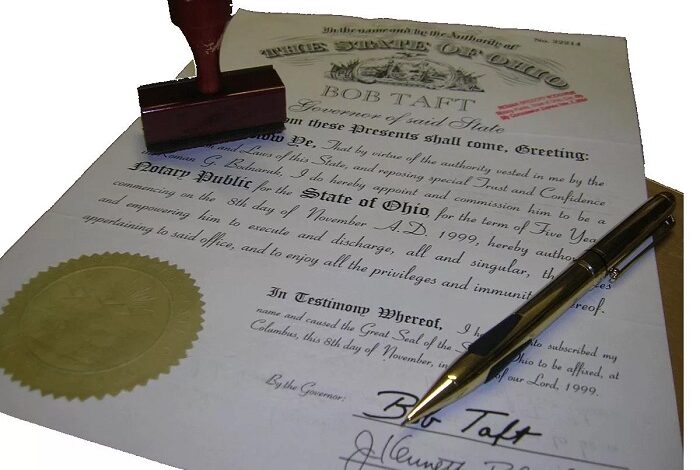 In the name and by the Authority of
No. 22214
THE STATE OF OHIO
BOB TAFT
Governor of said State
om these Presents shall come, Greeting:
Know Ye, That by virtue of the authority vested in me by the
and Laws of this State, and reposing special Trust and Confidence
Roman G. Bednarik, I do hereby appoint and commission him to be a
Notary Public for the State of Ohio, for the term of Five Yea
commencing on the 8th day of November A.D. 1999, hereby autho
and empowering him to execute and discharge, all and singular, th ties
appertaining to said office, and to enjoy all the privileges and immunit ereof.
In Testimony Whereof, I he subscribed my
name and caused the Great Seal of the S Ohio to be affixed, at
Columbus, this 8th day of November, in of our Lord, 1999.
By the Governor:
Bob Taft
J Kennett